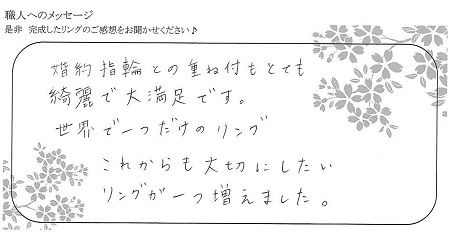 職人へのメッセージ
是非 完成したリングのご感想をお聞かせください♪
婚約指輪との重ね付もとても
綺麗で大満足です。
世界で一つだけのリング
これからも大切にしたい
リングが一つ増えました。